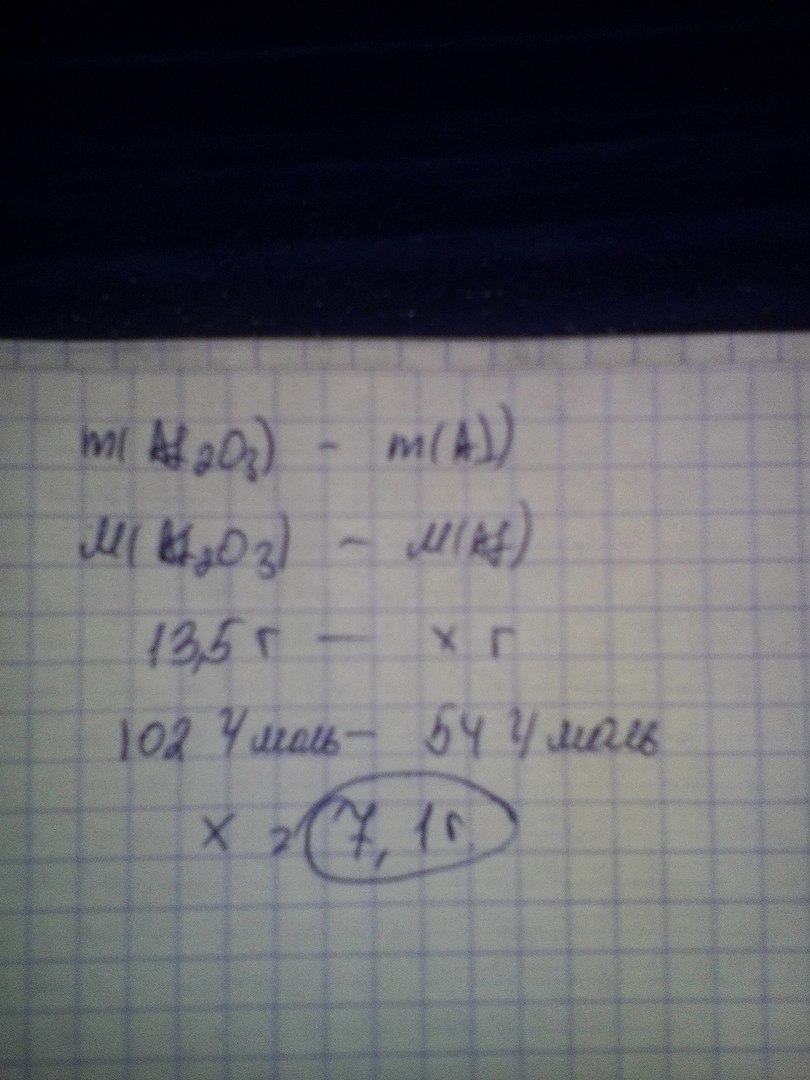 m(Al₂O₃) - m(Al)
M(Al₂O₃) - M(Al)
13,5 г — x г
102 г/моль - 54 г/моль
x = 7,1 г